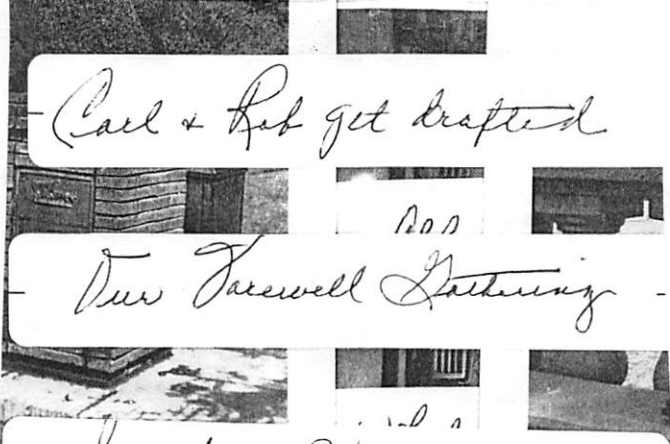 Carl & Rob get drafted
Our Farewell Gathering